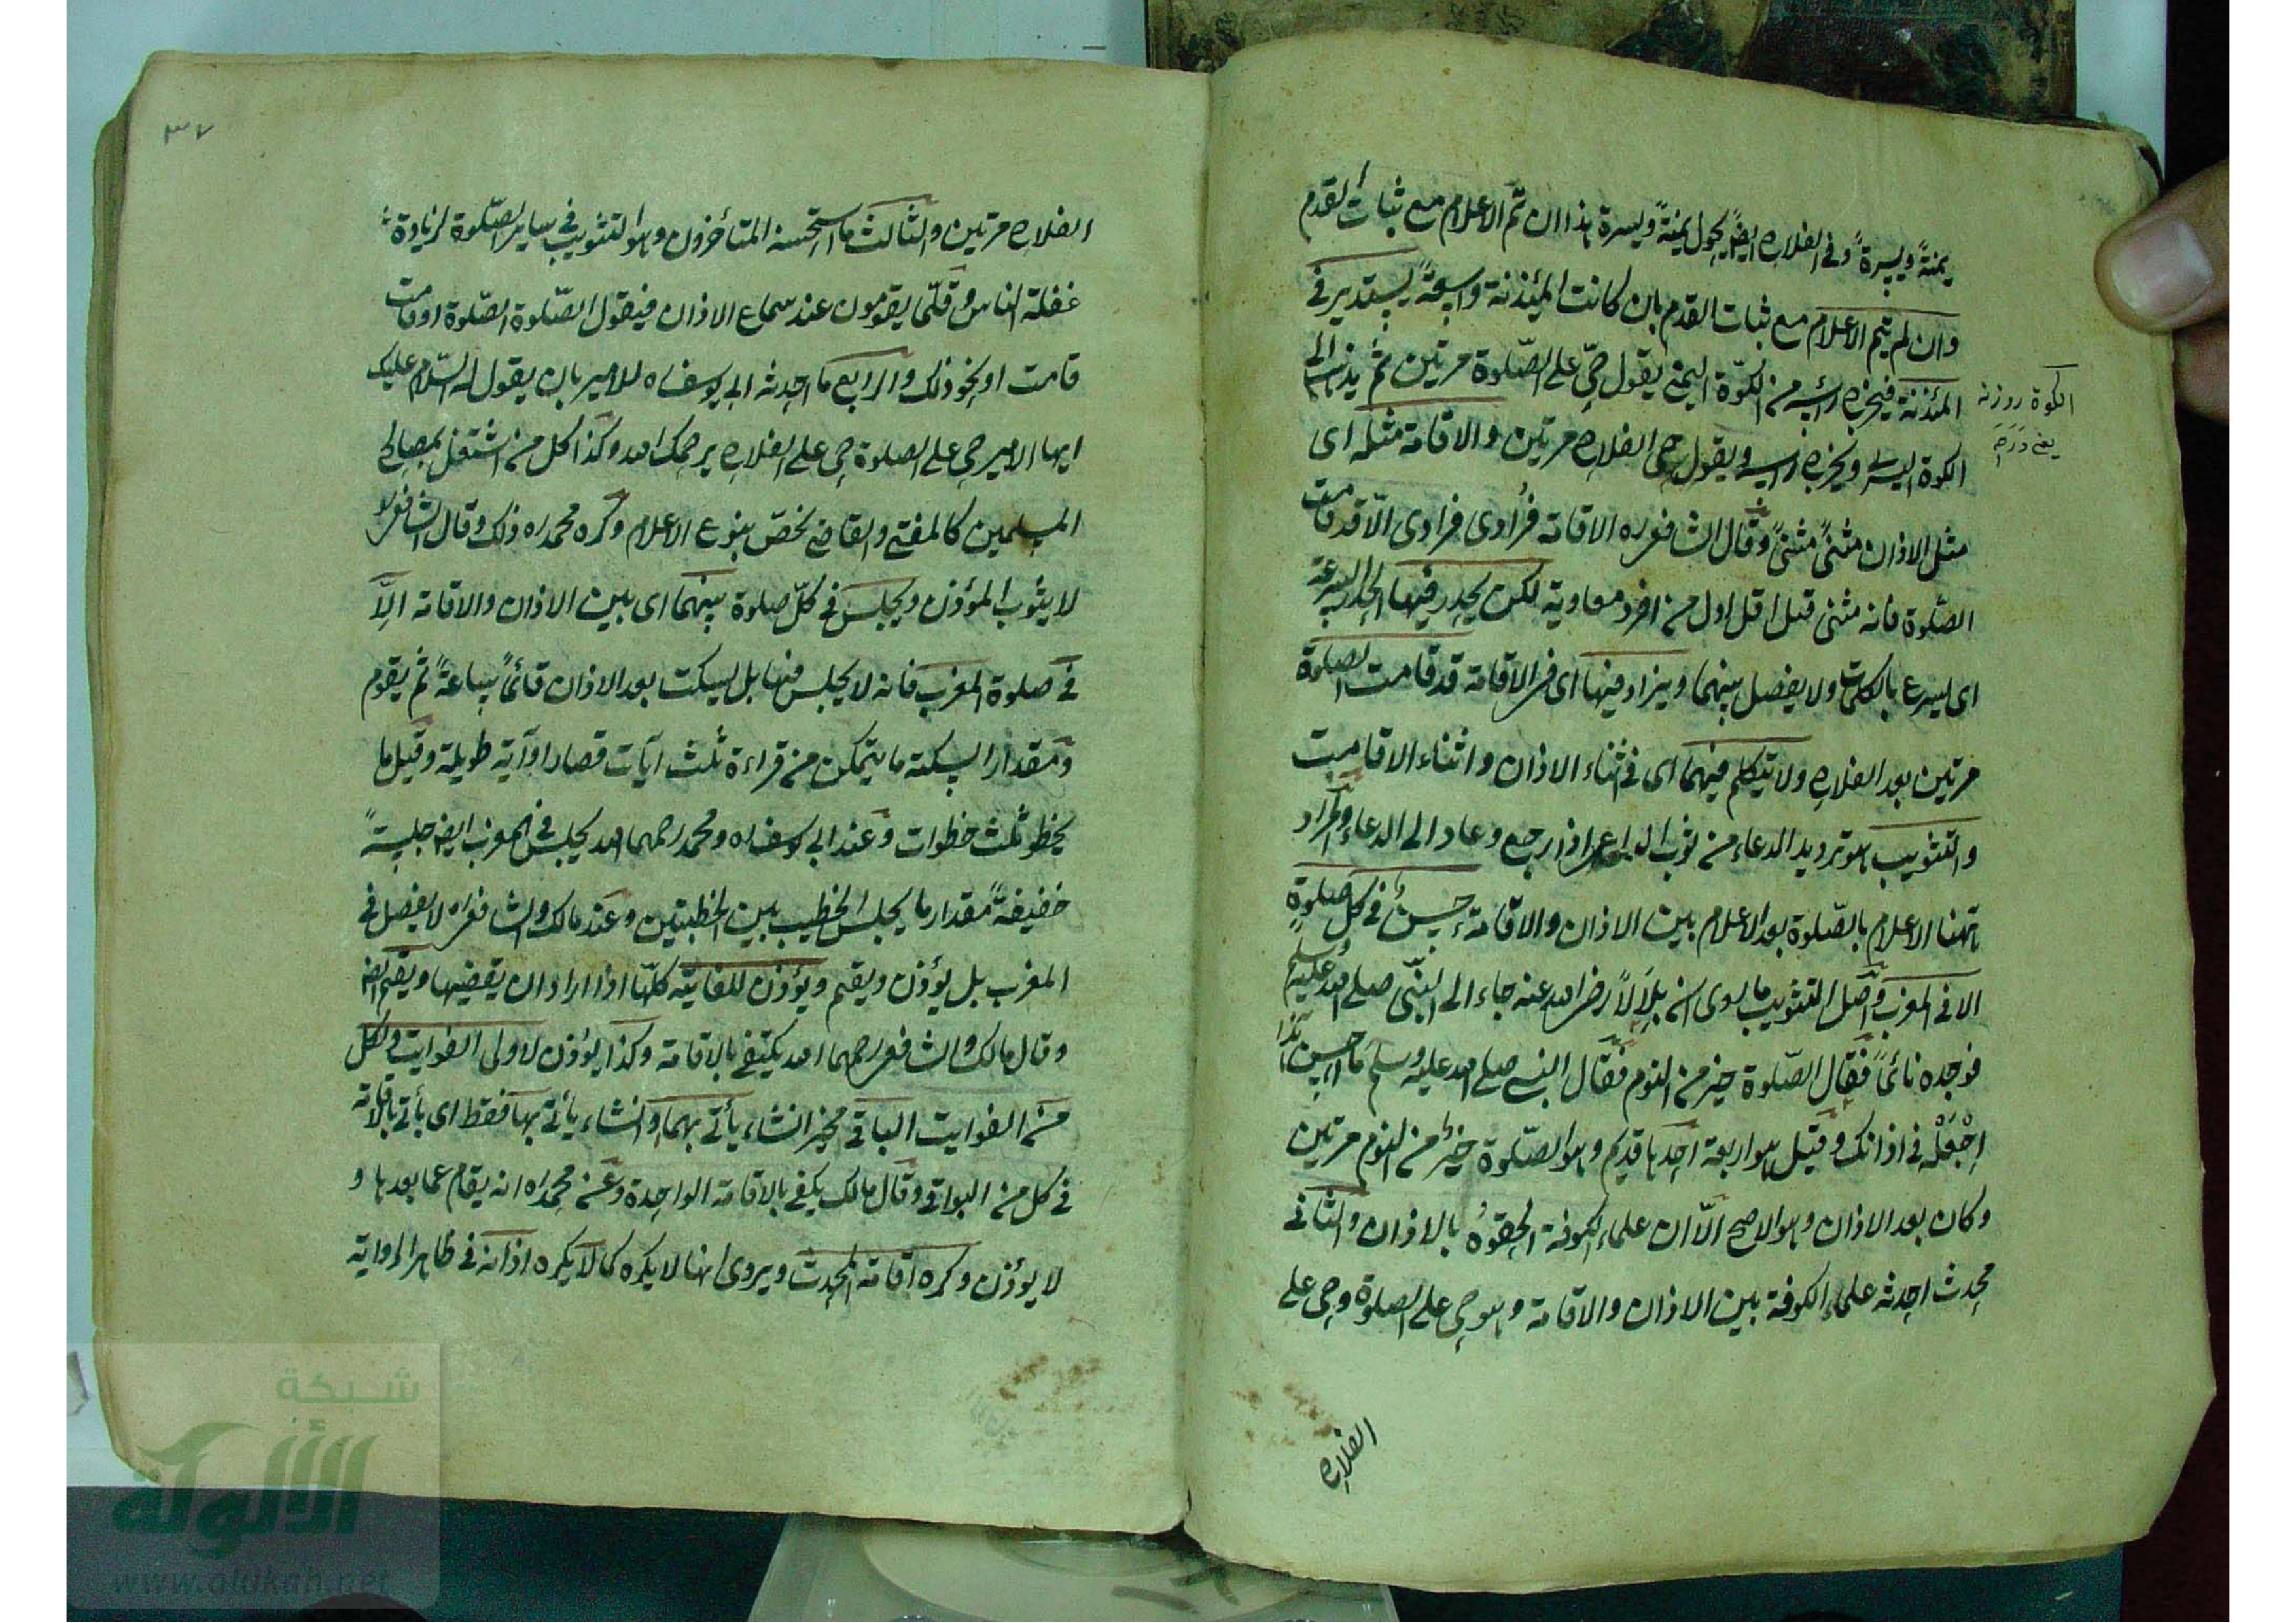 يمنةً ويسرةً وفى الفلاح ايضا يحول يمنةً ويسرة هذا ان تم الاعلام مع ثبات القدم
وان لم يتم الاعلام مع ثبات القدم بان كانت المئذنة واسعةً يستدير فى
المئذنة فيخرج راسه من الكوّة اليمنى يقول حىّ على الصّلوة مرتين ثم يذهب الى
الكوة اليسرى ويخرج راسه ويقول حى الفلاح مرتين والاقامة مثله اى
مثل الاذان مثنىً مثنىً وقال الشافعى ره الاقامة فُرادى فرادى الّا قد قامت
الصّلوة فانه مثنى قيل اول من افرد معاوية لكن يحدر فيها الحدر السرعة
اى يسرع بالكلمات ولا يفصل بينهما ويزاد فيها اى فى الاقامة قد قامت الصلوة
مرتين بعد الفلاح ولا يتكلم فيهما اى فى اثناء الاذان واثناء الاقامت
والتثويب هو ترديد الدعاء من ثوب الداعى اذا رجع وعاد الى الدعاء والمراد
ههنا الاعلام بالصّلوة بعد الاعلام بين الاذان والاقامة حسنٌ فى كل صلوةٍ
الا فى المغرب واصل التثويب ما روى ان بلالاً رضى الله عنه جاء الى النبّى صلى الله عليه وسلم
فوجده نائماً فقال الصّلوة خير من النوم فقال النبى صلى الله عليه وسلم ما احسن هذا
اِجْعَلْه فى اذانك وقيل هو اربعة احدها قديم وهو الصّلوة خيرٌ من النوم مرتين
وكان بعد الاذان وهو الاصح الّا ان علماء الكوفة الحقوهُ بالاذان والثانى
محدث احدثه علماء الكوفة بين الاذان والاقامة وهو حى على الصلوة وحى على
الكوة روزنه
يعنى
الفلاح
٣٧
الفلاح مرتين والثالث ما استحسنه المتأخرون وهو التثويب فى ساير الصّلوة لزيادة
غفلة الناس وقلّما يقومون عند سماع الاذان فيقول الصّلوة الصّلوة او قامت
قامت او نحو ذلك والرابع ما احدثه ابى يوسف ره للامير بان يقول له السّلم عليك
ايها الامير حى على الصلوة حى على الفلاح يرحمك الله وكذا كل من اشتغل بمصالح
المسلمين كالمفتى والقاضى يخصّ بنوع الاعلام وكره محمد ره ذلك وقال الشافعى ره
لا يثوب المؤذن ويجلس فى كلّ صلوة بينهما اى بين الاذان والاقامة الّا
فى صلوة المغرب فانه لا يجلس فيها بل يسكت بعد الاذان قائماً ساعةً ثم يقوم
ومقدار السكتة ما يتمكن من قراءة ثلث آيات قصار او آية طويلة وقيل ما
يخطو ثلث خطوات وعند ابى يوسف ره ومحمد رحمهما الله يجلس فى المغرب ايضا جلسةً
خفيفةً مقدار ما يجلس الخطيب بين الخطبتين وعند مالك والشافعى ره لا يفصل فى
المغرب بل يؤذن ويقيم ويؤذن للفايتة كلّها اذا اراد ان يقضيها ويقيم ايضا
وقال مالك والشافعى رحمهما الله يكتفى بالاقامة وكذا يؤذن لاولى الفوايت ولكل
من الفوايت الباقى مخير ان شاء يأتى بهما وان شاء يأتى بها فقط اى يأتى بالاقامة
فى كل من البواقى وقال مالك يكفى بالاقامة الواحدة وعن محمد ره انه يقام عما بعدها و
لا يؤذن وكره اقامة المحدث ويروى انها لا يكره كما لا يكره اذانه فى ظاهر الرواية
شبكة
الألوكة
www.alukah.net